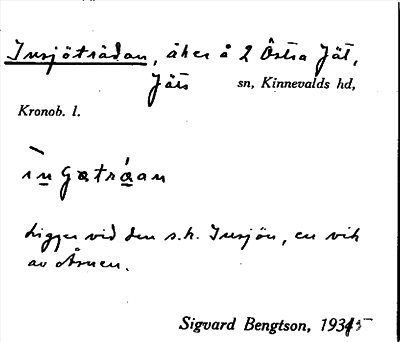 Insjöträdan, åker å 2 Östra Jät,
Jäts sn, Kinnevalds hd,
Kronob. l.
ìn gøtráan
Ligger vid den s.k. Insjön, en vik
av Åsnen.
Sigvard Bengtson, 1935